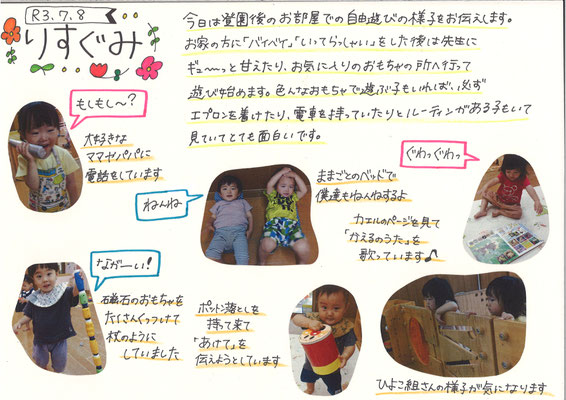 R3.7.8
りすぐみ
今日は登園後のお部屋での自由遊びの様子をお伝えします。
お家の方に「バイバイ」「いってらっしゃい」をした後は先生に
ギューっと甘えたり、お気に入りのおもちゃの所へ行って
遊び始めます。色んなおもちゃで遊ぶ子もいれば、必ず
エプロンを着けたり、電車を持っていたりとルーティンがある子もいて
見ていてとても面白いです。
もしもし〜?
大好きな
ママやパパに
電話をしています
ねんね
ままごとのベッドで
僕達もねんねするよ
ぐわっぐわっ
カエルのページを見て
「かえるのうた」を
歌っています♪
ながーい!
磁石のおもちゃを
たくさんくっつけて
杖のように
していました
ポットン落としを
持って来て
「あけて」を
伝えようとしています
ひよこ組さんの様子が気になります